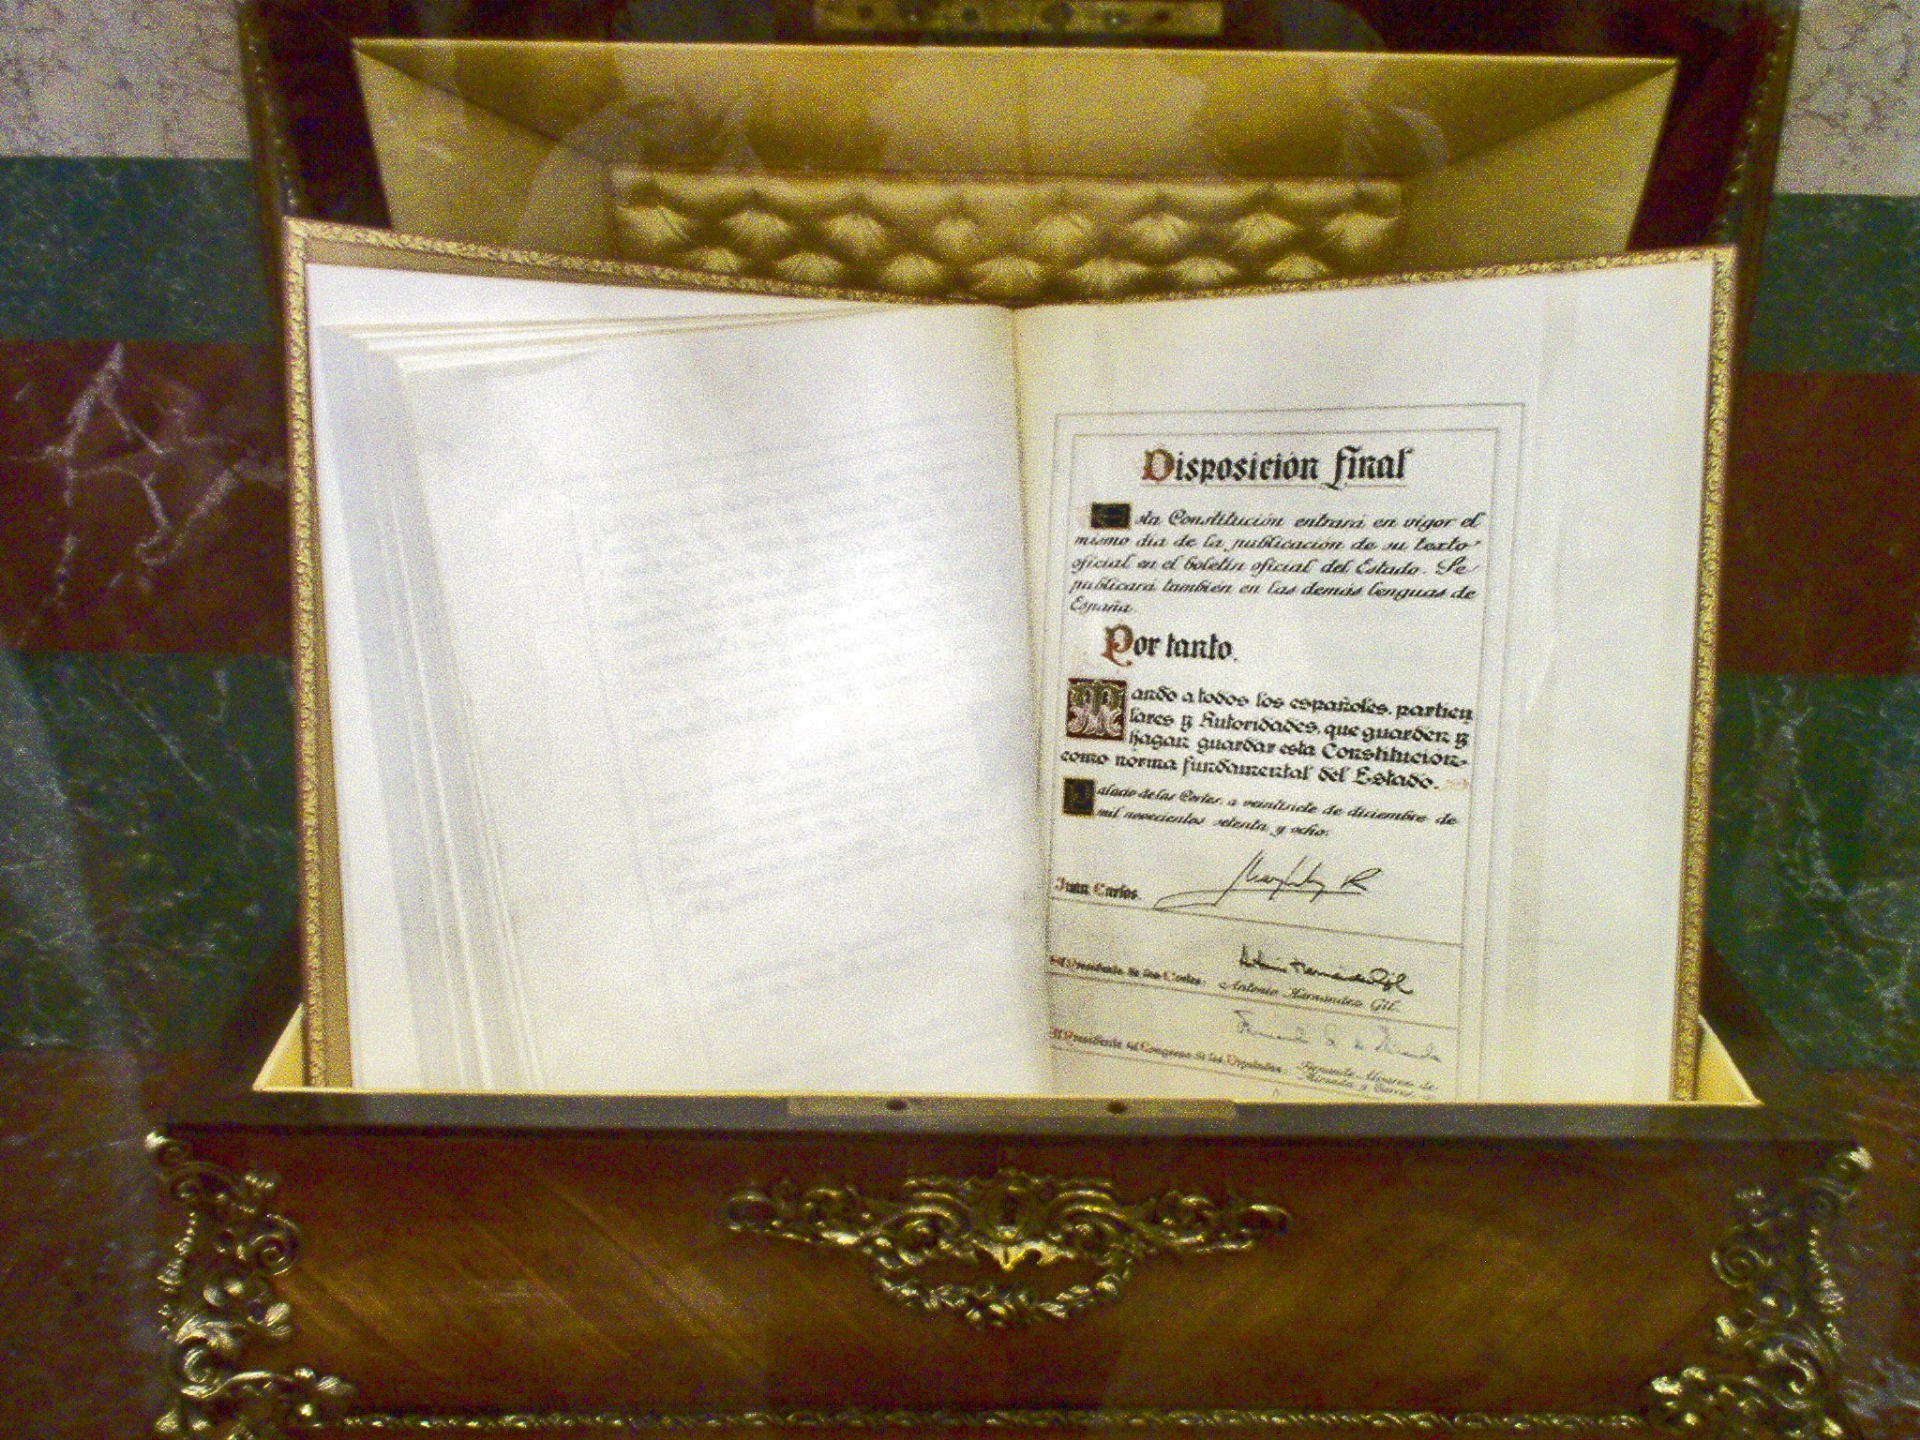 Disposición final
Esta Constitución entrará en vigor el
mismo día de la publicación de su texto
oficial en el boletín oficial del Estado. Se
publicará también en las demás lenguas de
España.
Por tanto.
Mando a todos los españoles, particu
lares y Autoridades, que guarden y
hagan guardar esta Constitución
como norma fundamental del Estado.
Palacio de las Cortes, a veintisiete de diciembre de
mil novecientos setenta y ocho.
Juan Carlos
El Presidente de las Cortes. Antonio Hernández Gil
Antonio Hernández Gil.
El Presidente del Congreso de los Diputados. Fernando Álvarez de
Miranda y Torres.